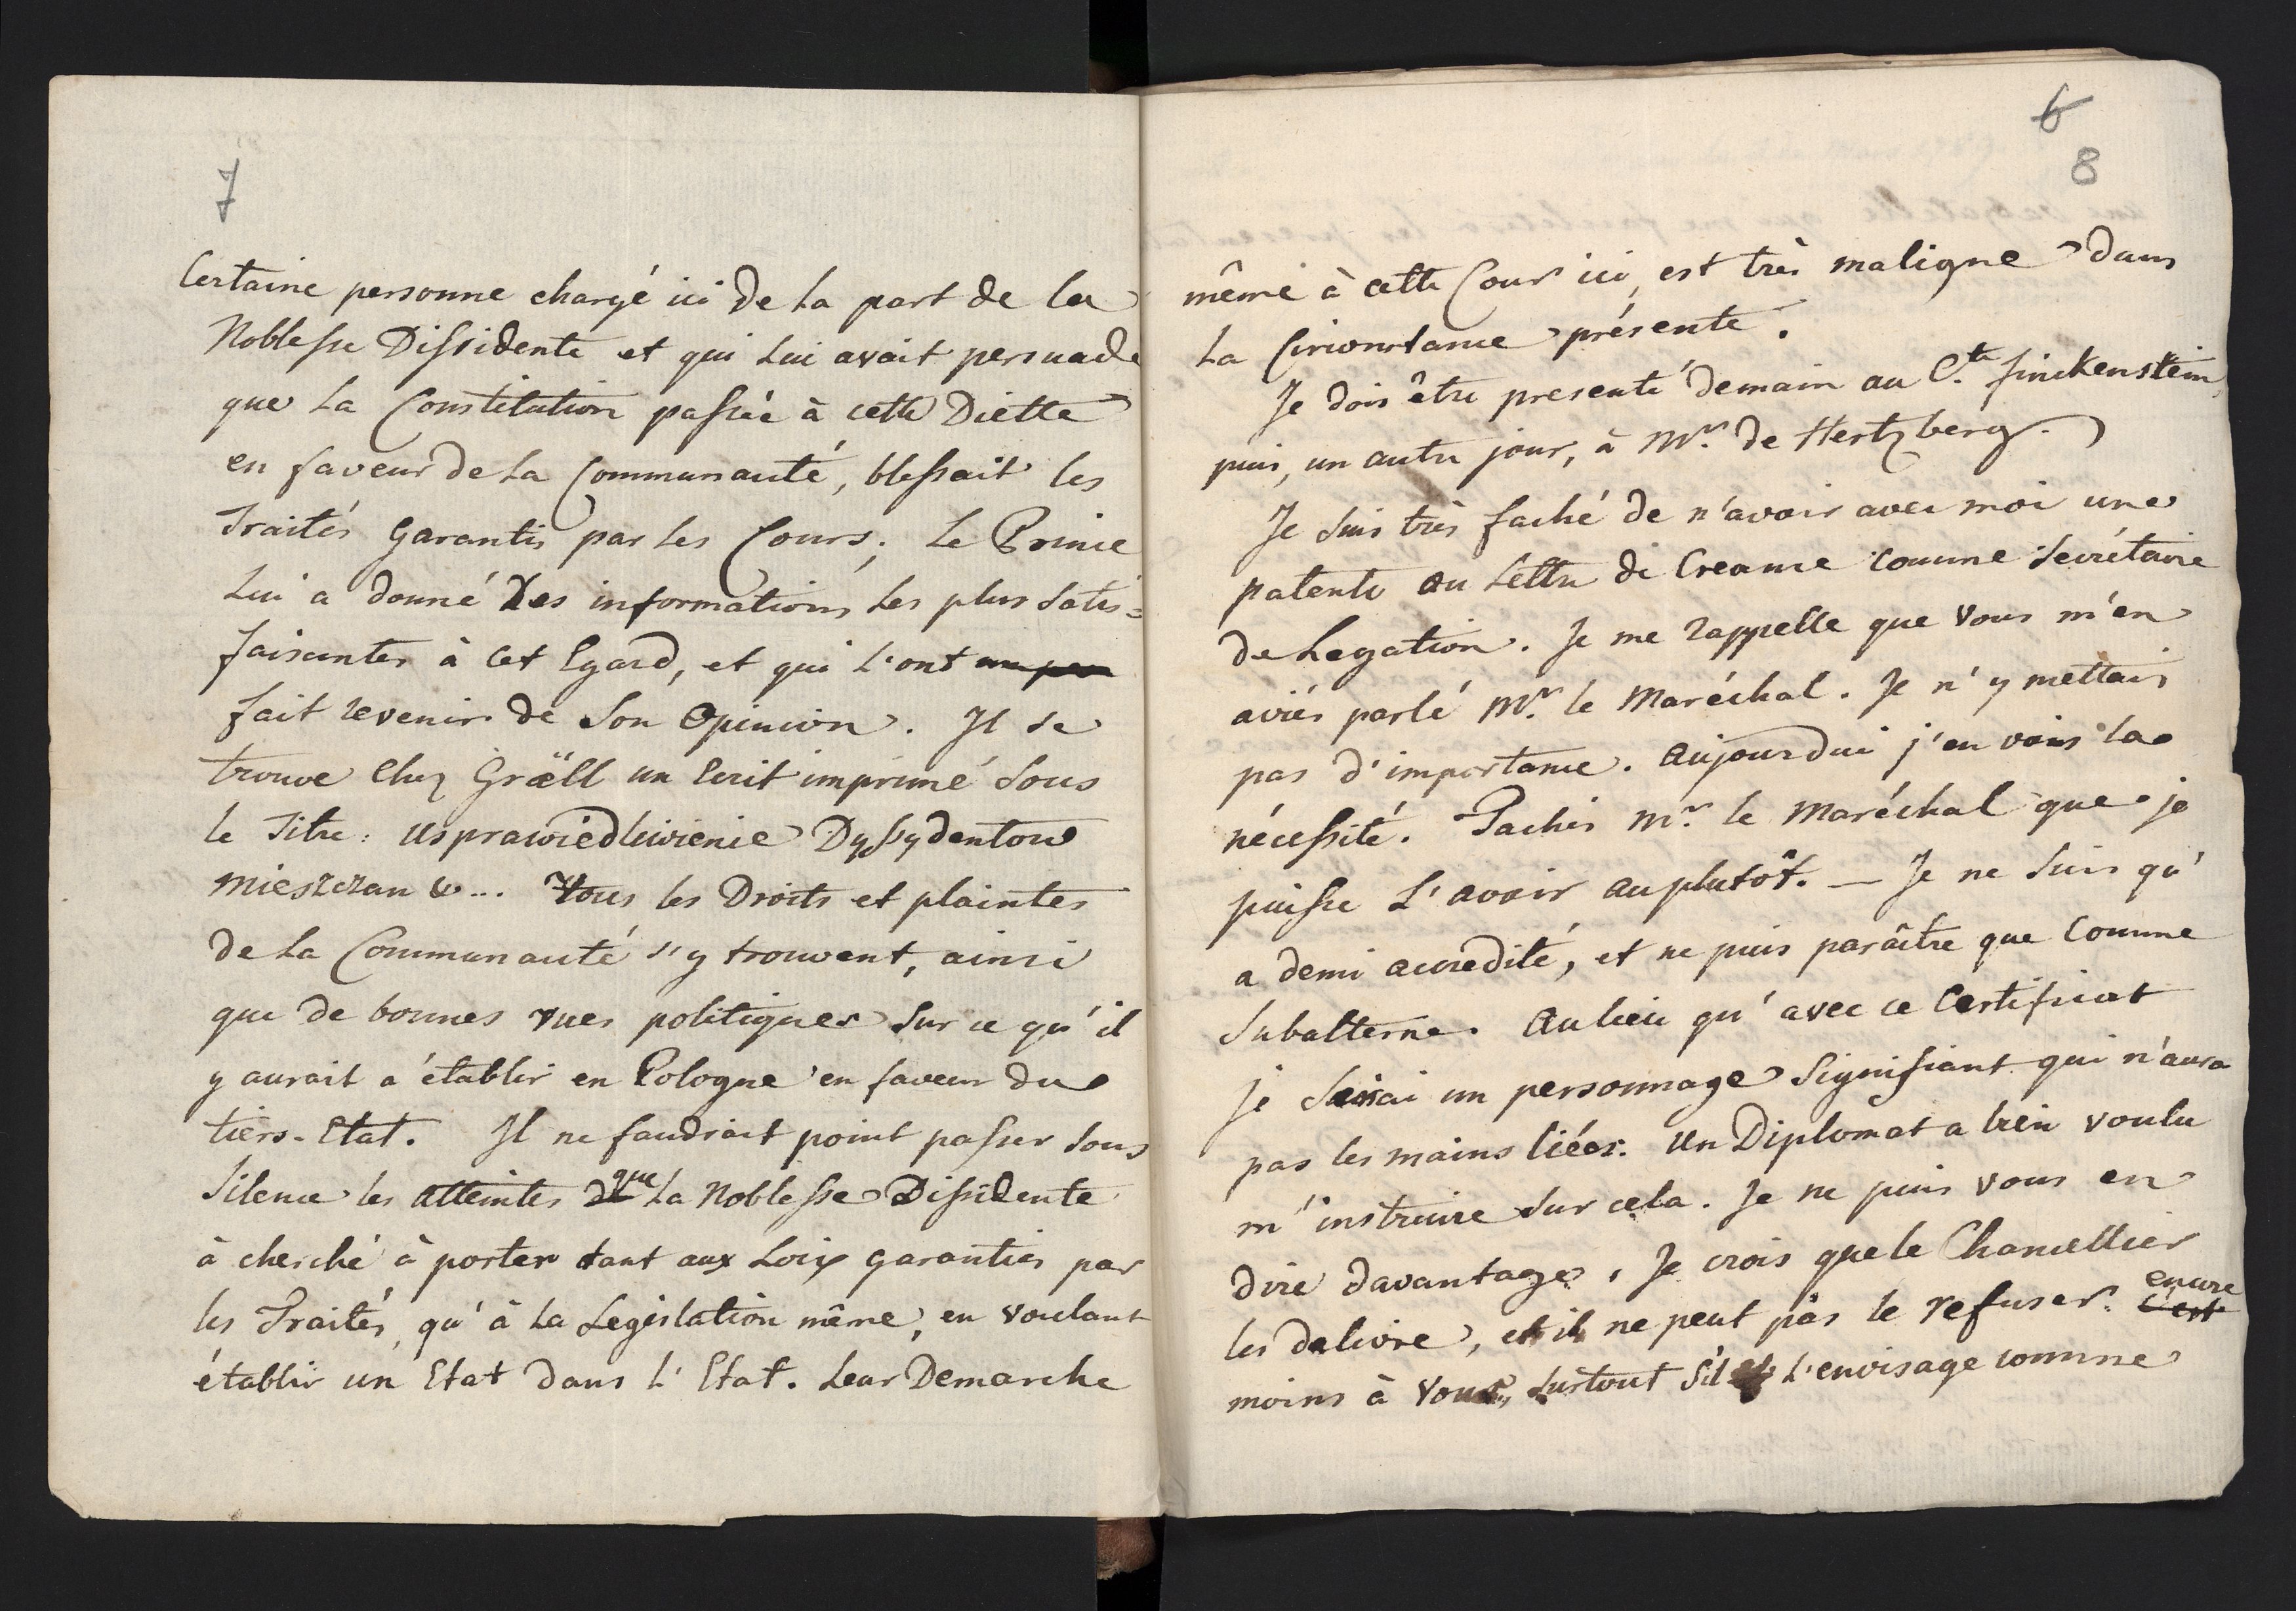 7
Certaine personne chargé ici de la part de la
Noblesse Dissidente et qui lui avait persuade
que la Constitution passée à cette Diette
en faveur de la Communauté, blessait les
Traités garantis par les Cours. Le Prince
lui a donné des informations les plus satis=
faisantes à cet Egard, et qui l'ont un peu
fait revenir de son Opinion. Il se
trouve chez Gräll un Ecrit imprimé sous
le Titre: Usprawiedliwienie Dyssydentow
Mieszczan &... Tous les Droits et plaintes
de la Communauté s'y trouvent, ainsi
que de bonnes vues politiques sur ce qu'il
y aurait a établir en Pologne en faveur du
tiers-Etat. Il ne faudrait point passer sous
Silence les atteintes que la Noblesse Dissidente
à cherché à porter tant aux Loix garanties par
les Traités, qu'à la Legislation même, en voulant
établir un Etat dans l'Etat. Leur Demarche
6
8
même à cette Cour ici, est très maligne dans
la Circonstance présente.
Je dois être presenté demain au C.te Finckenstein,
puis, un autre jour, à Mr. de Hertzberg.
Je suis très faché de n'avoir avec moi une
patente ou Lettre de Creance comme Secrétaire
de Legation. Je me rappelle que vous m'en
aviés parlé Mr. le Maréchal. Je n'y mettais
pas d'importance. Aujourdui j'en vois la
nécessité. Tachés Mr. le Maréchal que je
puisse l'avoir au plutôt. — Je ne suis qu'
a demi accredité, et ne puis paraître que comme
Subalterne. Au lieu qu'avec ce Certificat
je serai un personnage signifiant qui n'aura
pas les mains liées. Un Diplomat a bien voulu
m'instruire sur cela. Je ne puis vous en
dire davantage. Je crois que le Chancellier
les delivre, et il ne peut pas le refuser. C'est
encore
moins à vous, surtout s'il l'envisage comme